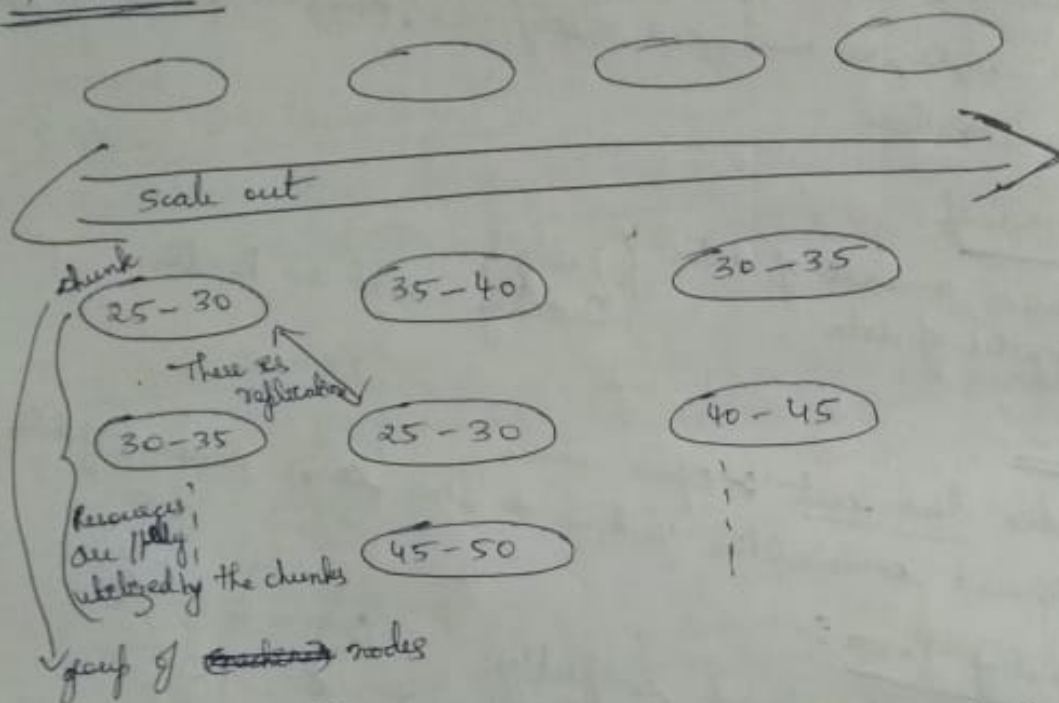 scale out
chunk
25 - 30
35 - 40
30 - 35
There is
replication
30 - 35
25 - 30
40 - 45
Resources
are ||elly
utilized by the chunks
45 - 50
group of nodes